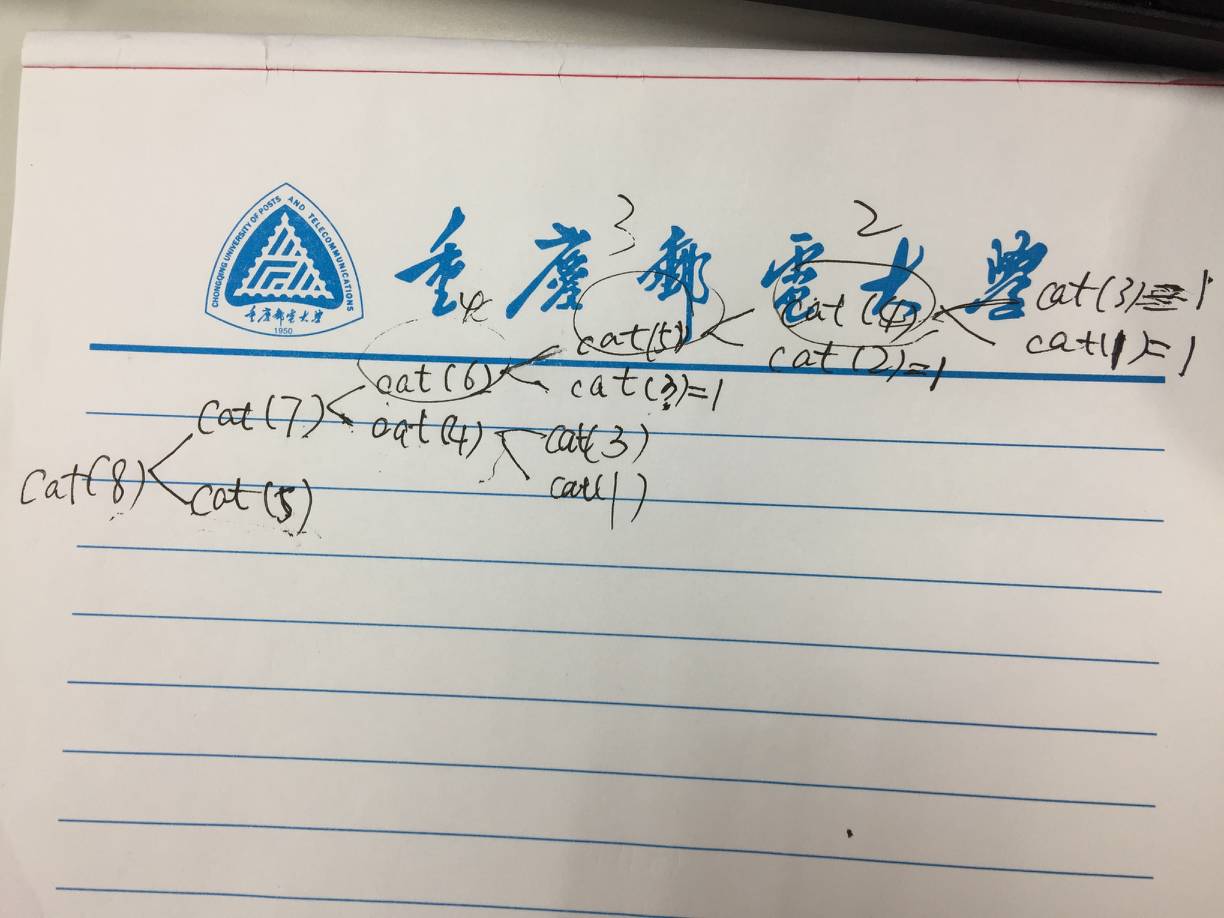 CHONGQING UNIVERSITY OF POSTS AND TELECOMMUNICATIONS
重庆邮电大学
1950
重慶郵電大學
3
2
4
cat(3)=1
cat(4)
cat(1)=1
cat(5)
cat(2)=1
cat(6)
cat(3)=1
cat(7)
cat(4)
cat(3)
cat(8)
cat(5)
cat(1)